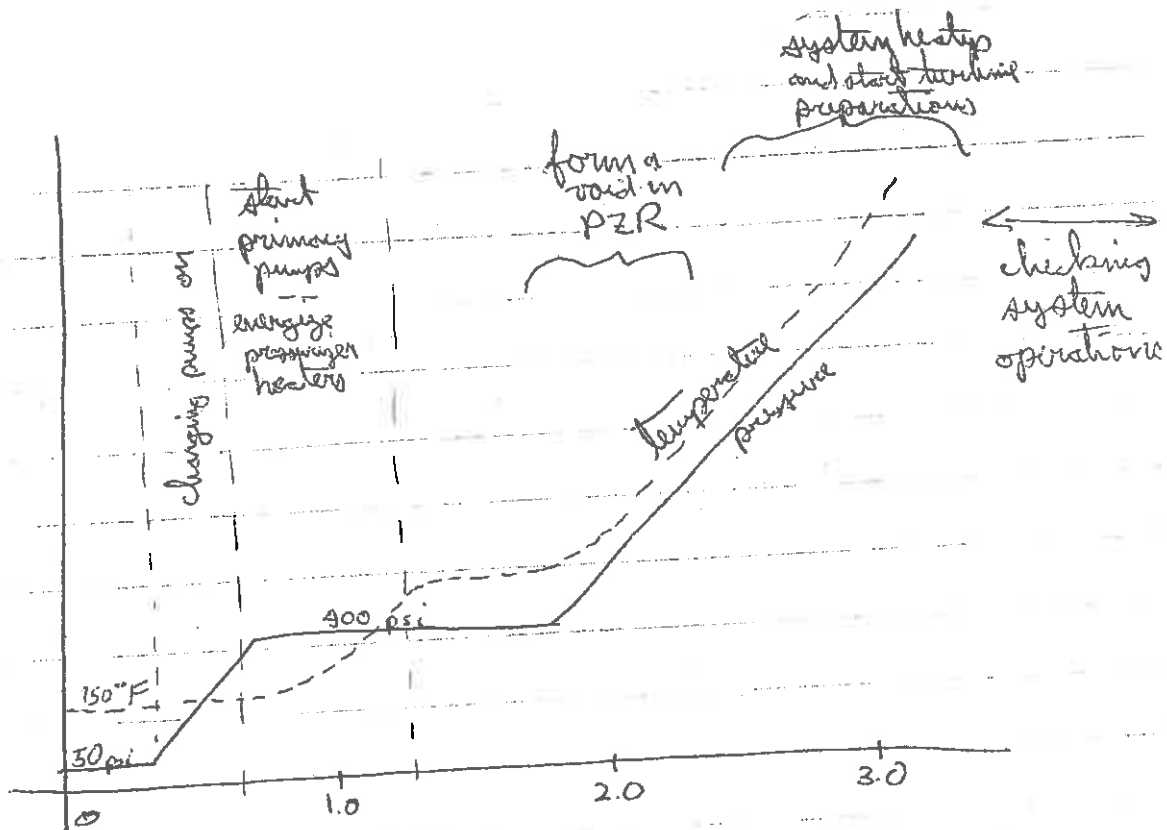 system heatup
and start turbine
preparations
form a
void in
PZR
start
primary
pumps
energize
pressurizer
heaters
charging pumps on
checking
system
operations
temperature
pressure
400 psi
150°F
50 psi
0
1.0
2.0
3.0